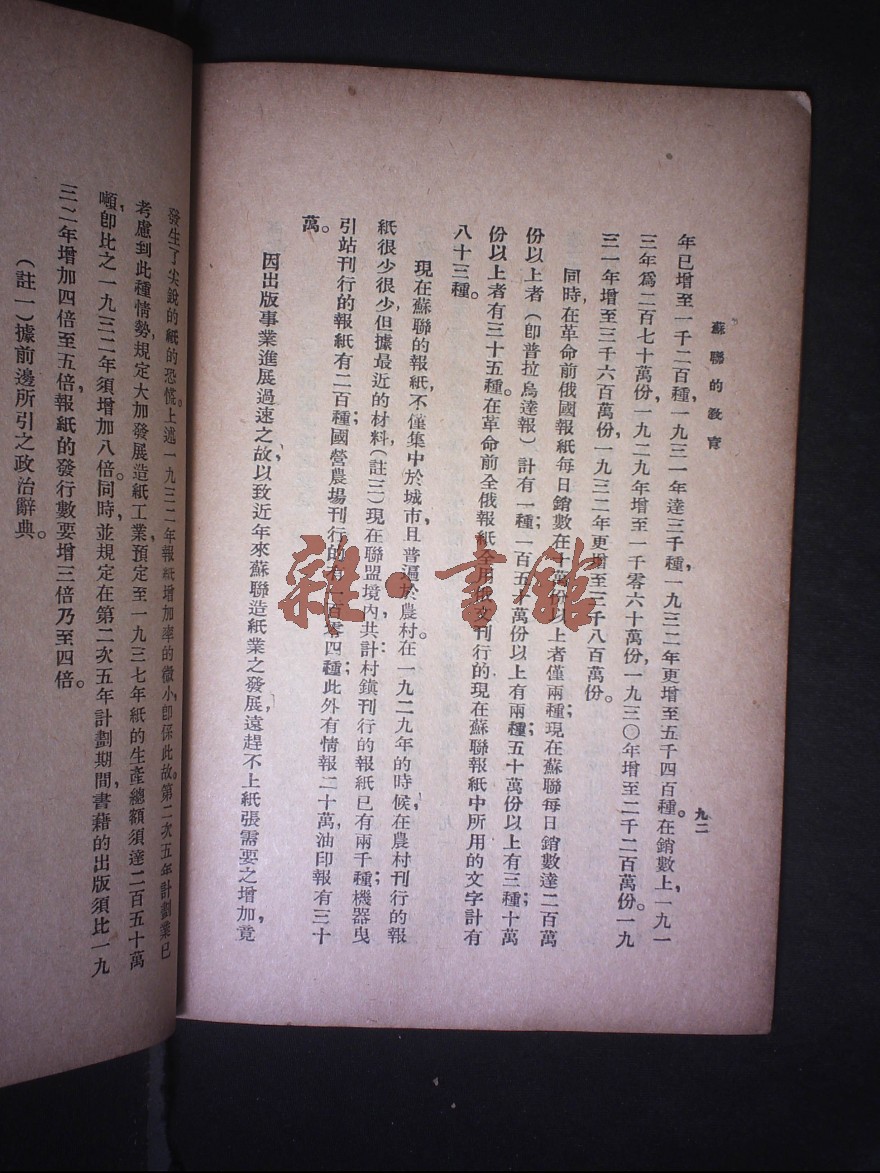 蘇聯的教育
九二
年已增至一千二百種，一九三一年達三千種，一九三二年更增至五千四百種。在銷數上，一九一
三年爲二百七十萬份，一九二九年增至一千零六十萬份，一九三〇年增至二千二百萬份。一九
三一年增至三千六百萬份，一九三二年更增至三千八百萬份。
同時，在革命前俄國報紙每日銷數在十萬份以上者僅兩種；現在蘇聯每日銷數達二百萬
份以上者（卽普拉烏達報）計有一種；一百五十萬份以上有兩種；五十萬份以上有三種；十萬
份以上者有三十五種。在革命前全俄報紙全用俄文刊行的，現在蘇聯報紙中所用的文字計有
八十三種。
現在蘇聯的報紙，不僅集中於城市，且普遍於農村。在一九二九年的時候，在農村刊行的報
紙很少很少，但據最近的材料（註三）現在聯盟境內，共計：村鎮刊行的報紙已有兩千種；機器曳
引站刊行的報紙有二百種；國營農場刊行的有一百零四種；此外有情報二十萬，油印報有三十
萬。
因出版事業進展過速之故，以致近年來蘇聯造紙業之發展，遠趕不上紙張需要之增加，竟
發生了尖銳的紙的恐慌。上述一九三二年報紙增加率的微小，卽係此故。第二次五年計劃業已
考慮到此種情勢，規定大加發展造紙工業，預定至一九三七年紙的生產總額須達二百五十萬
噸，卽比之一九三二年須增加八倍。同時，並規定在第二次五年計劃期間，書藉的出版須比一九
三二年增加四倍至五倍，報紙的發行數要增三倍乃至四倍。
（註一）據前邊所引之政治辭典。
雜·書館